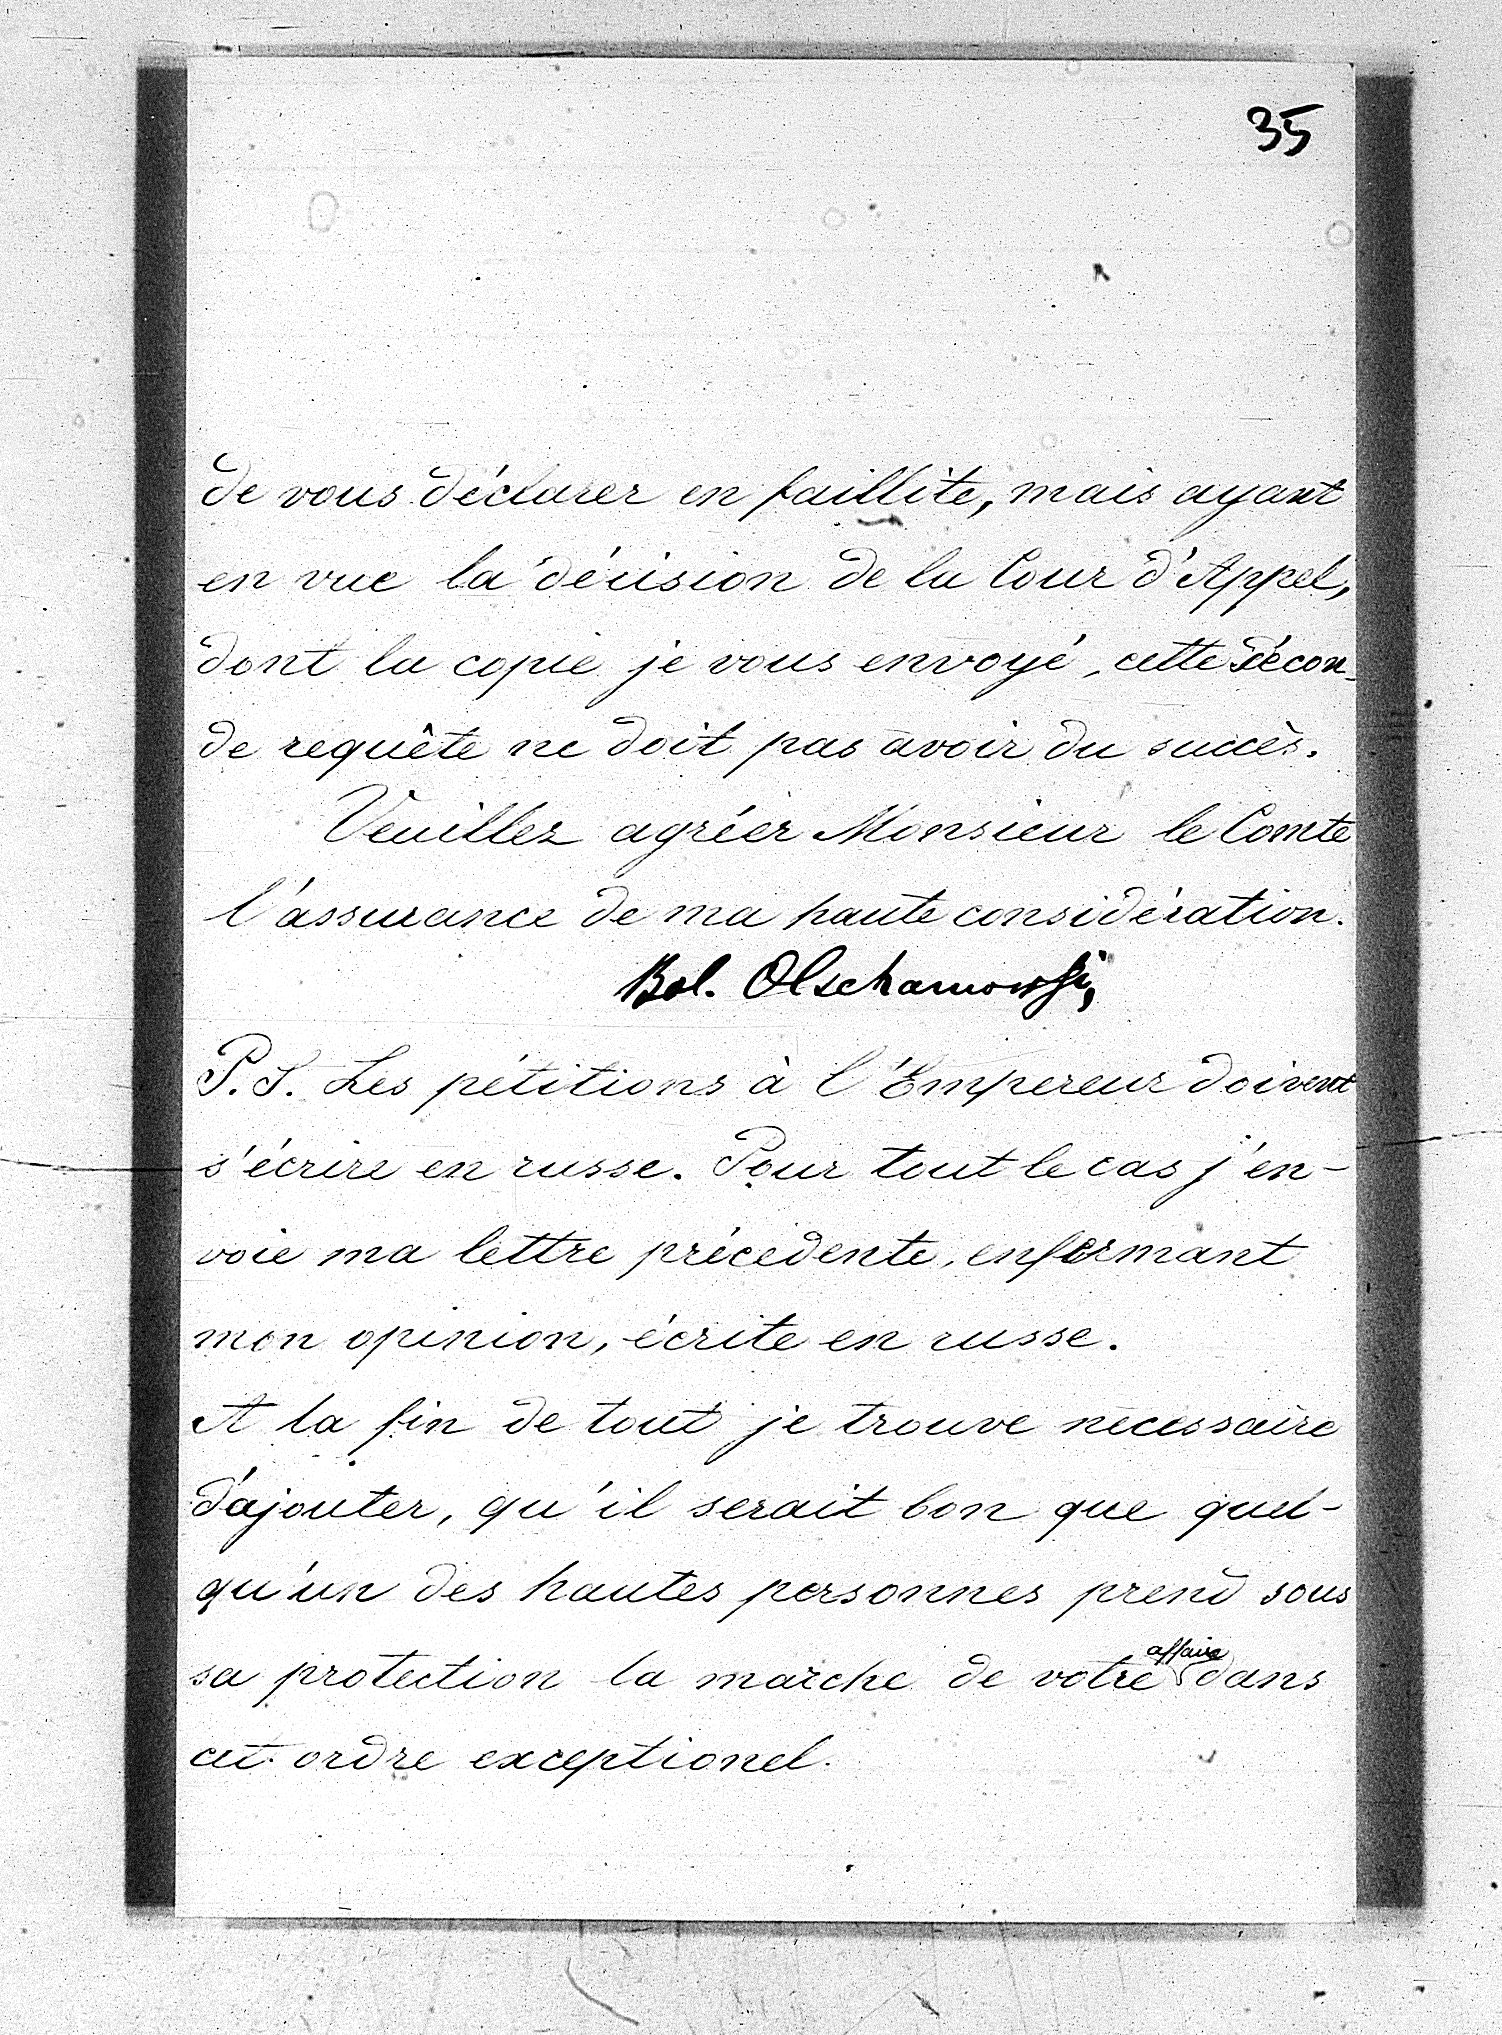 35
de vous déclarer en faillite, mais ayant
en vue la décision de la Cour d'Appel,
dont la copie je vous envoyé, cette sécon-
de requête ne doit pas avoir du succès.
Veuillez agréer Monsieur le Comte
l'assurance de ma haute considération.
Bol. Olschamowski,
P.S. Les pétitions à l'Empereur doivent
s'écrire en russe. Pour tout le cas j'en-
voie ma lettre précedente, enformant
mon opinion, écrite en russe.
A la fin de tout je trouve nécessaire
d'ajouter, qu'il serait bon que quel-
qu'un des hautes personnes prend sous
sa protection la marche de votre affaire dans
cet ordre exceptionel.